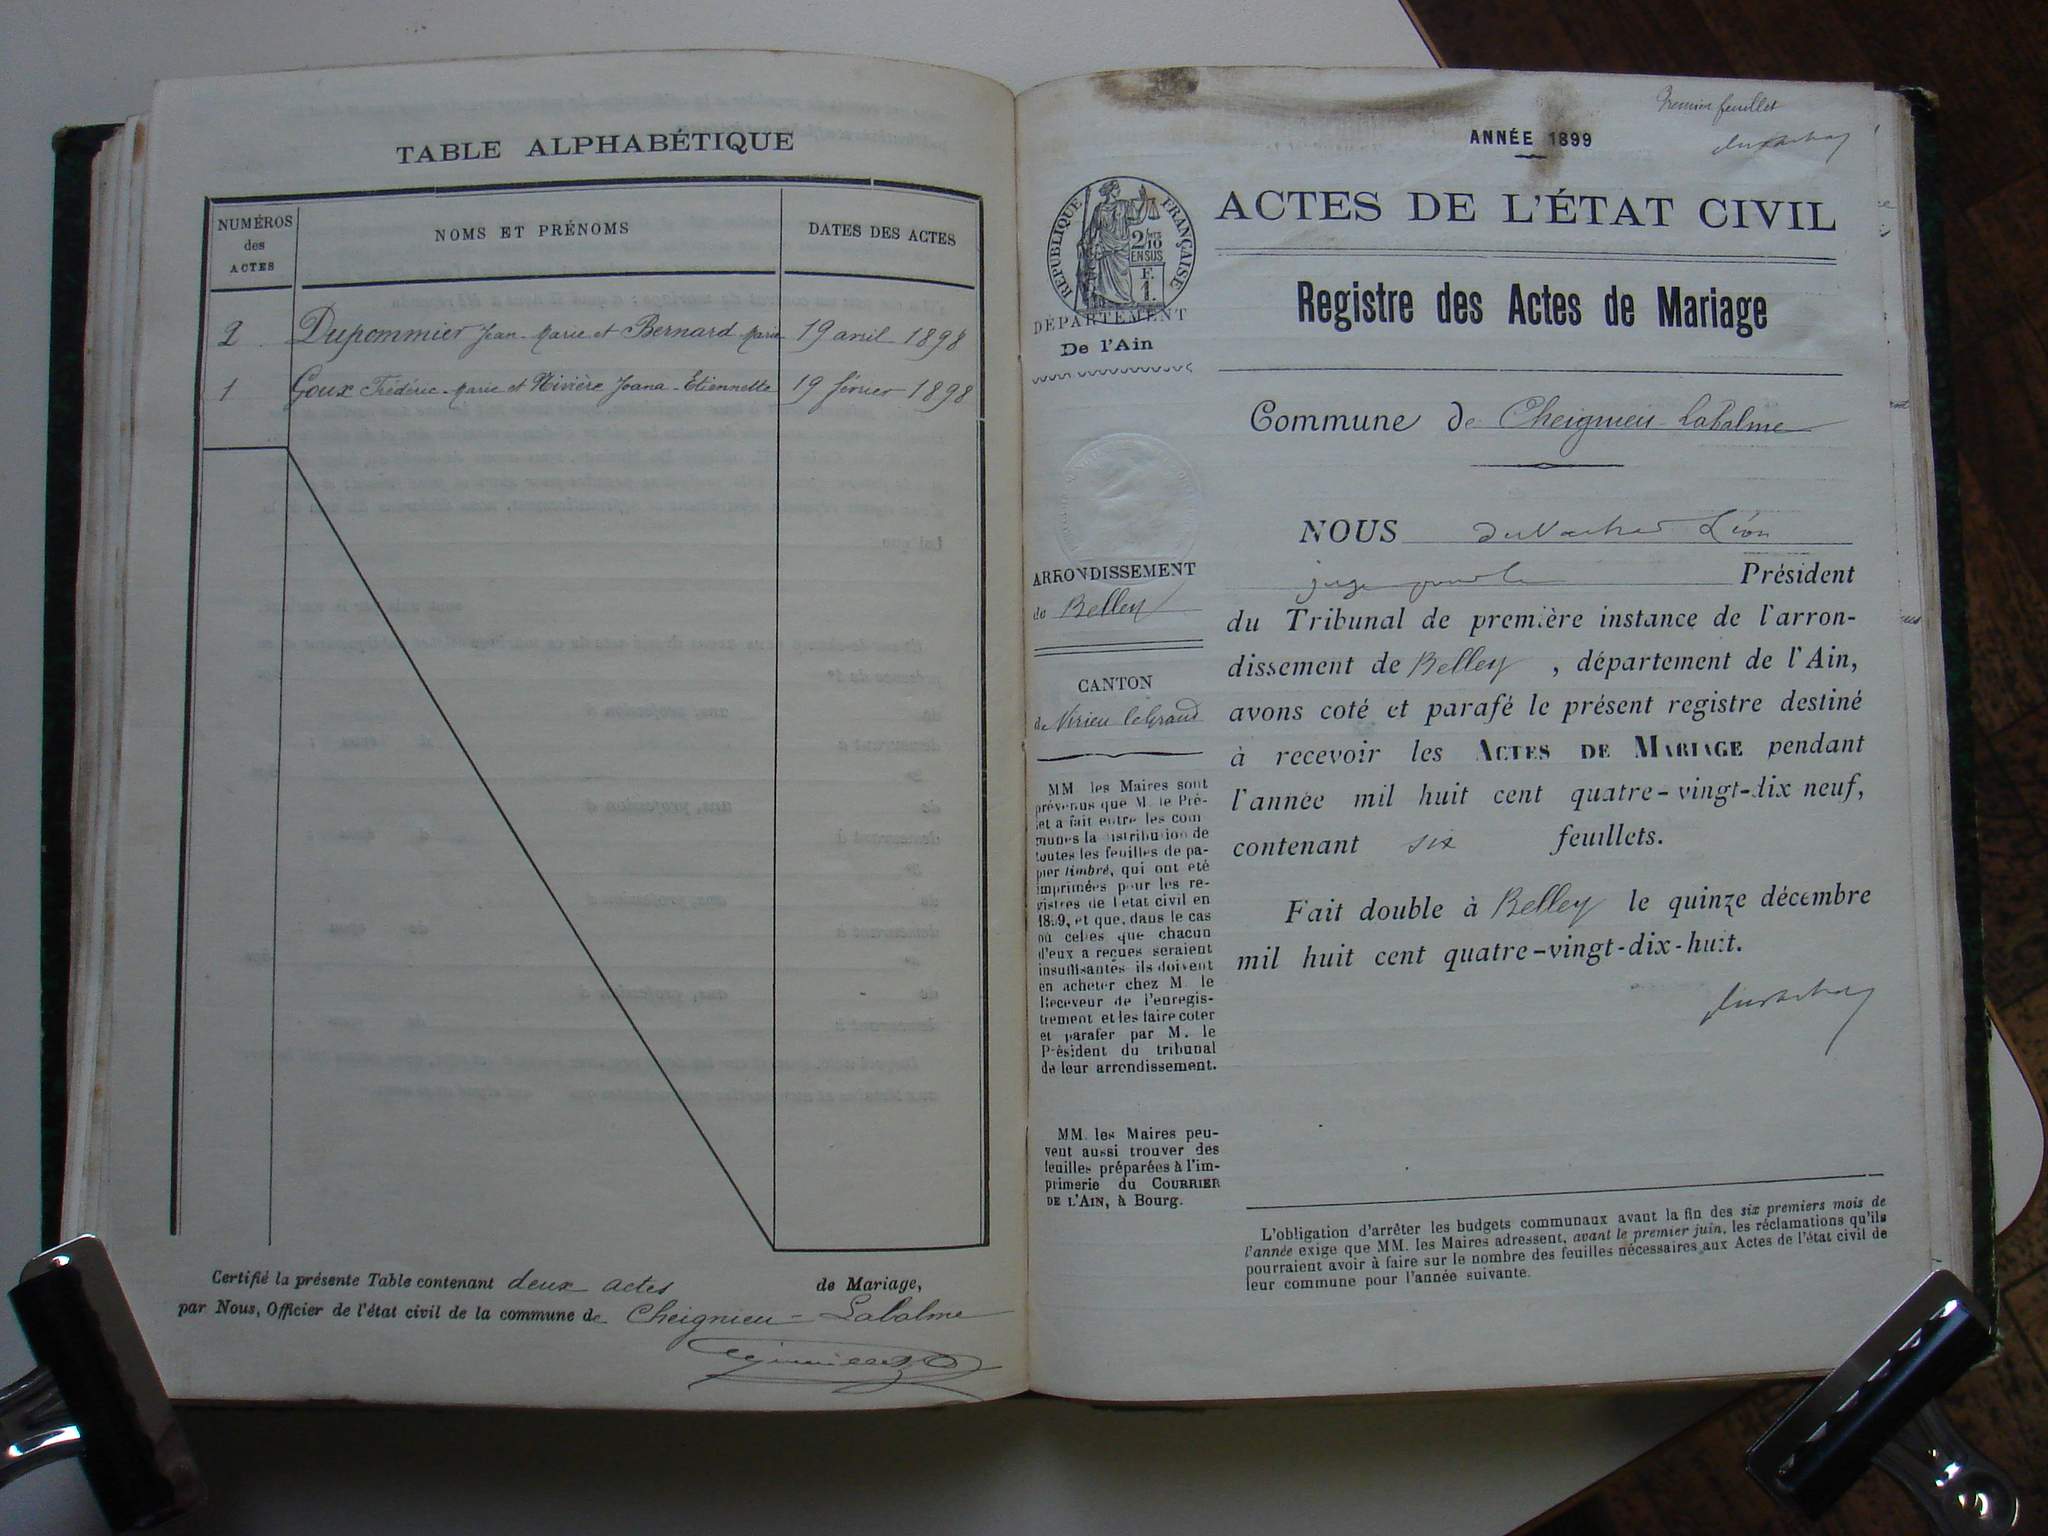 TABLE ALPHABÉTIQUE
NUMÉROS
des
ACTES
NOMS ET PRÉNOMS
DATES DES ACTES
2 Dupommier Jean-Marie et Bernard Marie 19 avril 1898
1 Goux Frédéric-Marie et Rivière Joana-Etiennette 19 février 1898
Certifié la présente Table contenant deux actes de Mariage,
par Nous, Officier de l'état civil de la commune de Cheignieu-Labalme
Premier feuillet
ANNÉE 1899
ACTES DE L'ÉTAT CIVIL
RÉPUBLIQUE FRANÇAISE
2/10
EN SUS
F.
1.
DÉPARTEMENT
De l'Ain
Registre des Actes de Mariage
Commune de Cheignieu-Labalme
ARRONDISSEMENT
de Belley
CANTON
de Virieu le Grand
MM les Maires sont
prévenus que M. le Pré-
fet a fait entre les com
munes la distribution de
toutes les feuilles de pa-
pier timbré, qui ont été
imprimées pour les re-
gistres de l'état civil en
1899, et que, dans le cas
où celles que chacun
d'eux a reçues seraient
insuffisantes ils doivent
en acheter chez M. le
Receveur de l'enregis-
trement et les faire coter
et parafer par M. le
Président du tribunal
de leur arrondissement.
MM. les Maires peu-
vent aussi trouver des
feuilles préparées à l'im-
primerie du COURRIER
DE L'AIN, à Bourg.
NOUS Léon
juge Président
du Tribunal de première instance de l'arron-
dissement de Belley, département de l'Ain,
avons coté et parafé le présent registre destiné
à recevoir les ACTES DE MARIAGE pendant
l'année mil huit cent quatre-vingt-dix neuf,
contenant six feuillets.
Fait double à Belley le quinze décembre
mil huit cent quatre-vingt-dix-huit.
L'obligation d'arrêter les budgets communaux avant la fin des six premiers mois de
l'année exige que MM. les Maires adressent, avant le premier juin, les réclamations qu'ils
pourraient avoir à faire sur le nombre des feuilles nécessaires aux Actes de l'état civil de
leur commune pour l'année suivante.